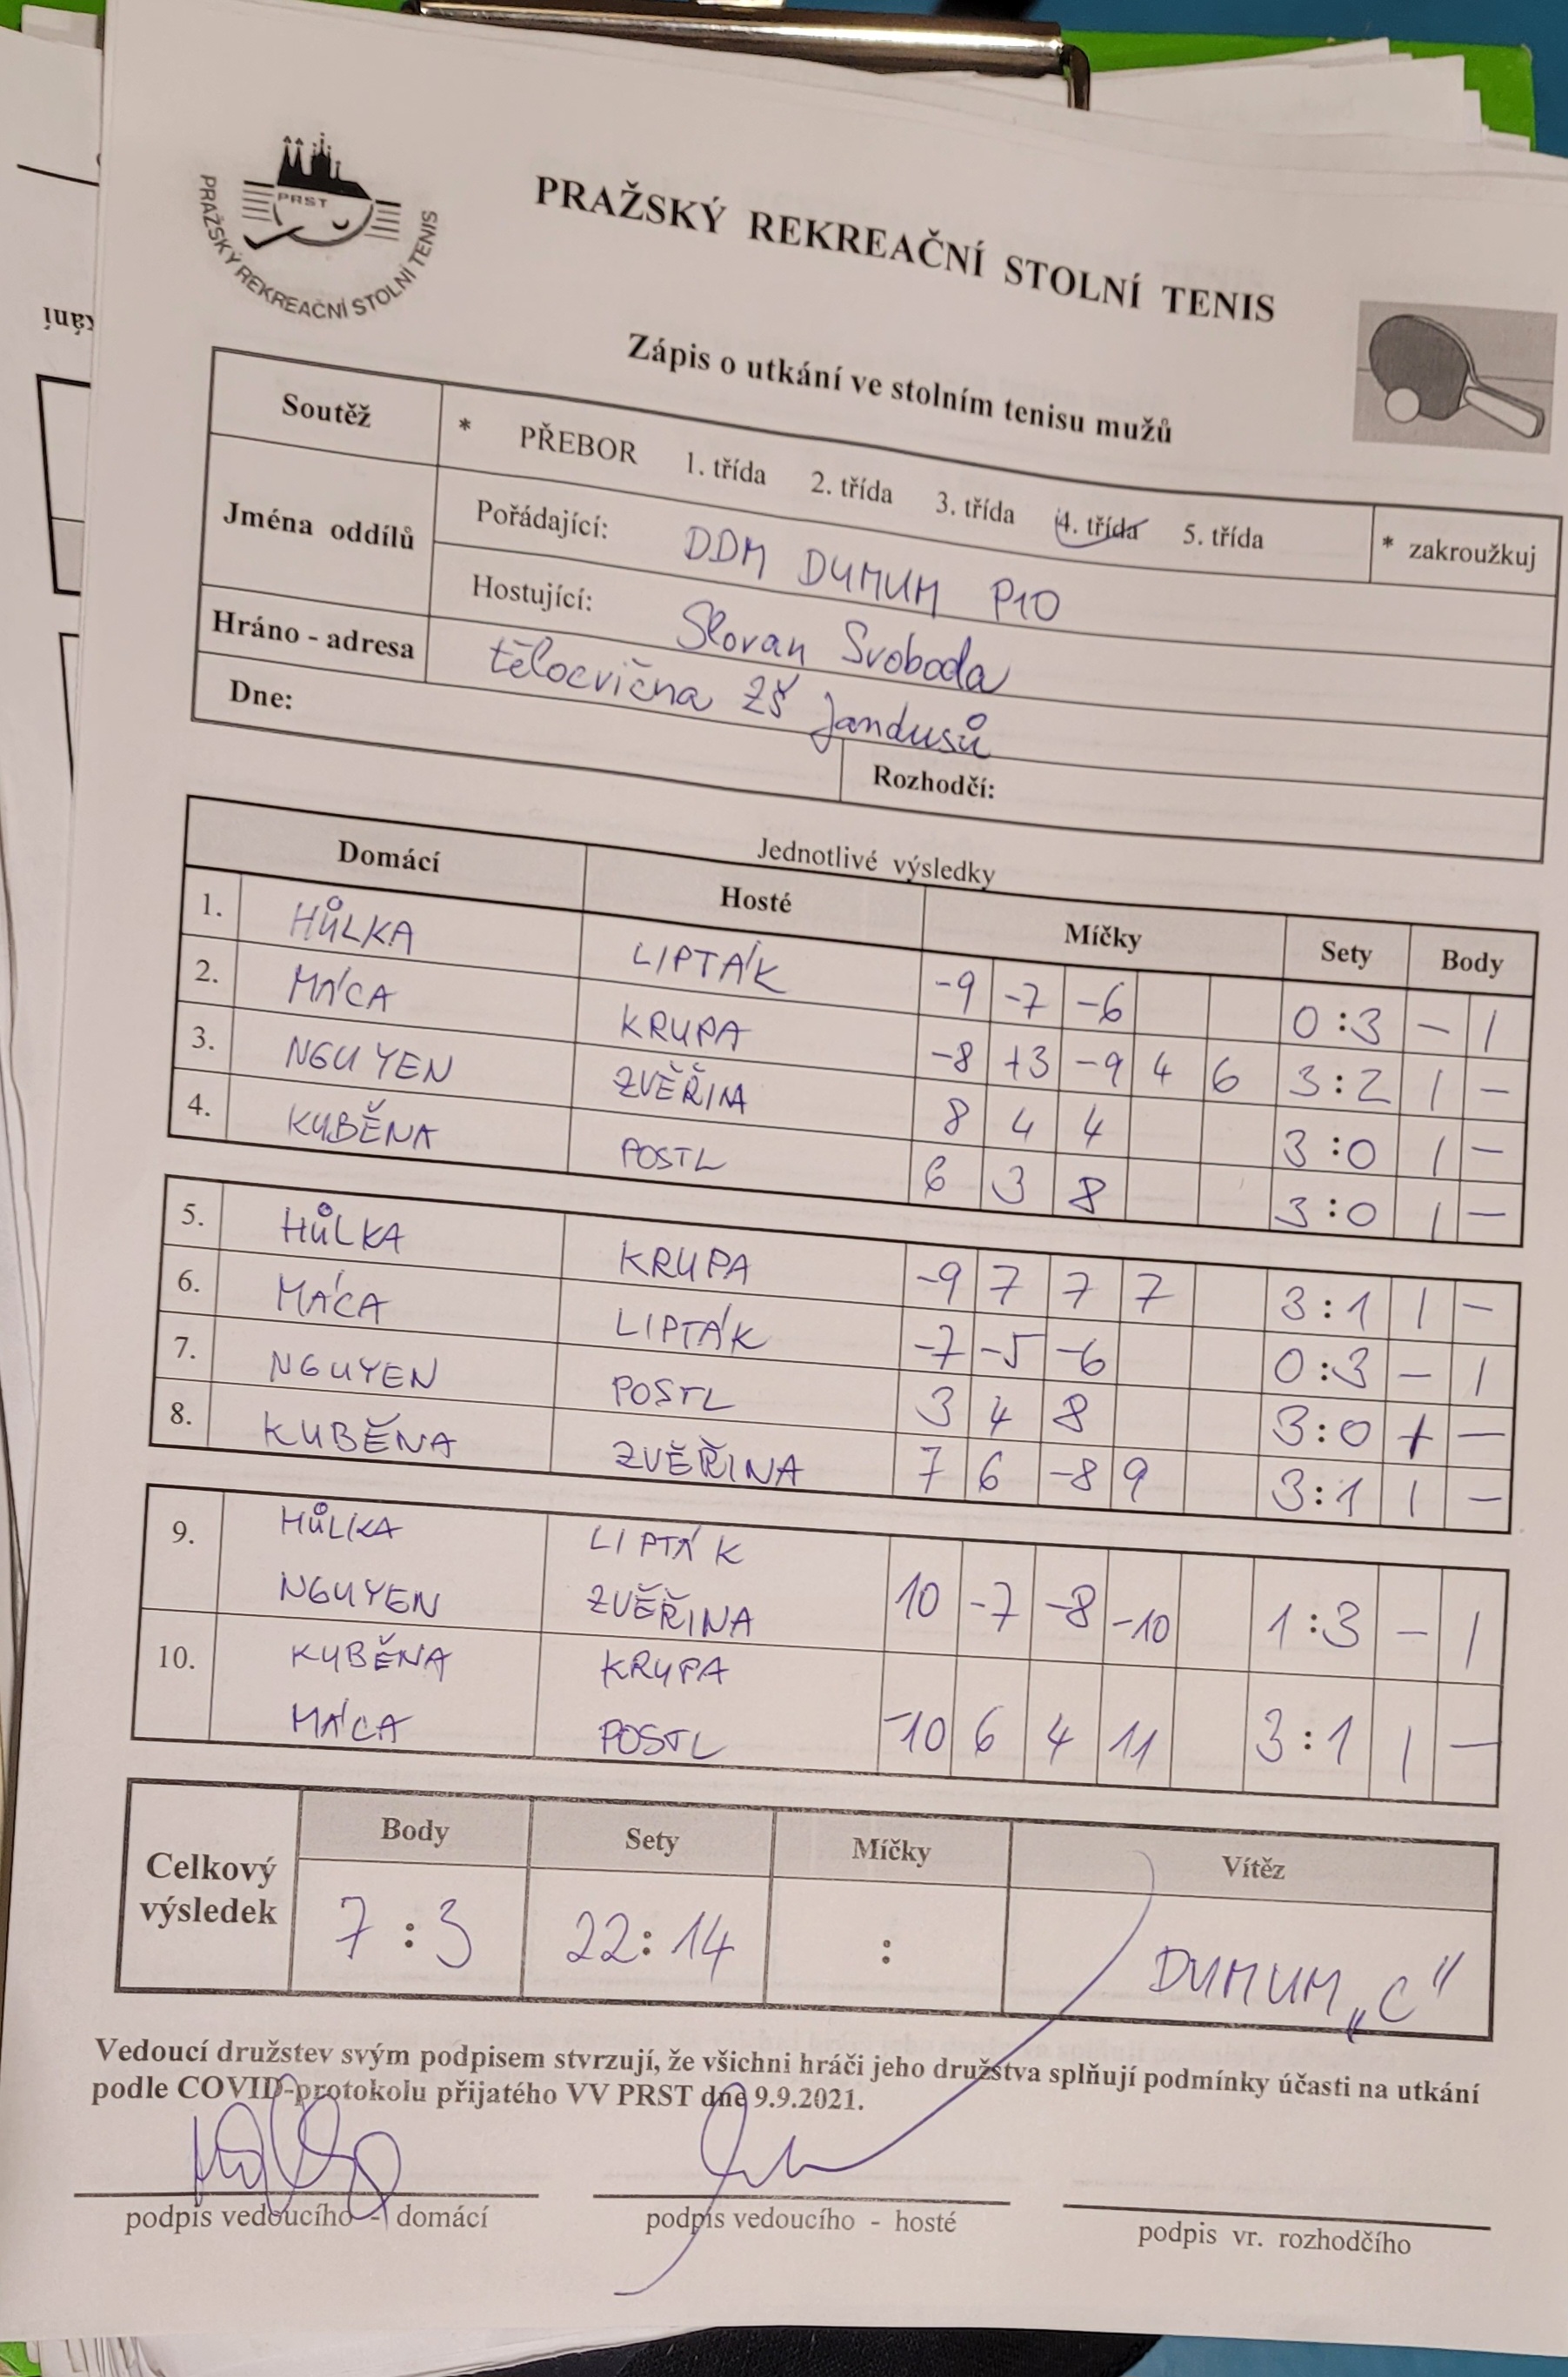 PRST
PRAŽSKÝ REKREAČNÍ STOLNÍ TENIS
PRAŽSKÝ REKREAČNÍ STOLNÍ TENIS
Zápis o utkání ve stolním tenisu mužů
Soutěž * PŘEBOR 1. třída 2. třída 3. třída 4. třída 5. třída * zakroužkuj
Jména oddílů Pořádající: DDM DUMUM P10
Hostující: Slovan Svoboda
Hráno - adresa tělocvična ZŠ Jandusů
Dne: Rozhodčí:
Jednotlivé výsledky
Domácí Hosté Míčky Sety Body
1. HŮLKA LIPTÁK -9 -7 -6 0:3 - 1
2. MÁCA KRUPA -8 +3 -9 4 6 3:2 1 -
3. NGUYEN ZVĚŘINA 8 4 4 3:0 1 -
4. KUBĚNA POSTL 6 3 8 3:0 1 -
5. HŮLKA KRUPA -9 7 7 7 3:1 1 -
6. MÁCA LIPTÁK -7 -5 -6 0:3 - 1
7. NGUYEN POSTL 3 4 8 3:0 + -
8. KUBĚNA ZVĚŘINA 7 6 -8 9 3:1 1 -
9. HŮLKA LIPTÁK
NGUYEN ZVĚŘINA 10 -7 -8 -10 1:3 - 1
10. KUBĚNA KRUPA
MÁCA POSTL -10 6 4 11 3:1 1 -
Celkový výsledek Body Sety Míčky Vítěz
7:3 22:14 : DUMUM „C"
Vedoucí družstev svým podpisem stvrzují, že všichni hráči jeho družstva splňují podmínky účasti na utkání
podle COVID-protokolu přijatého VV PRST dne 9.9.2021.
podpis vedoucího - domácí podpis vedoucího - hosté podpis vr. rozhodčího